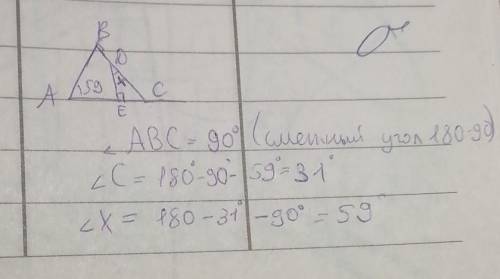 B
D
59 x
A C
E
∠ABC = 90° (смежный угол 180-90)
∠C = 180°-90°-59°=31°
∠X = 180-31°-90°=59°